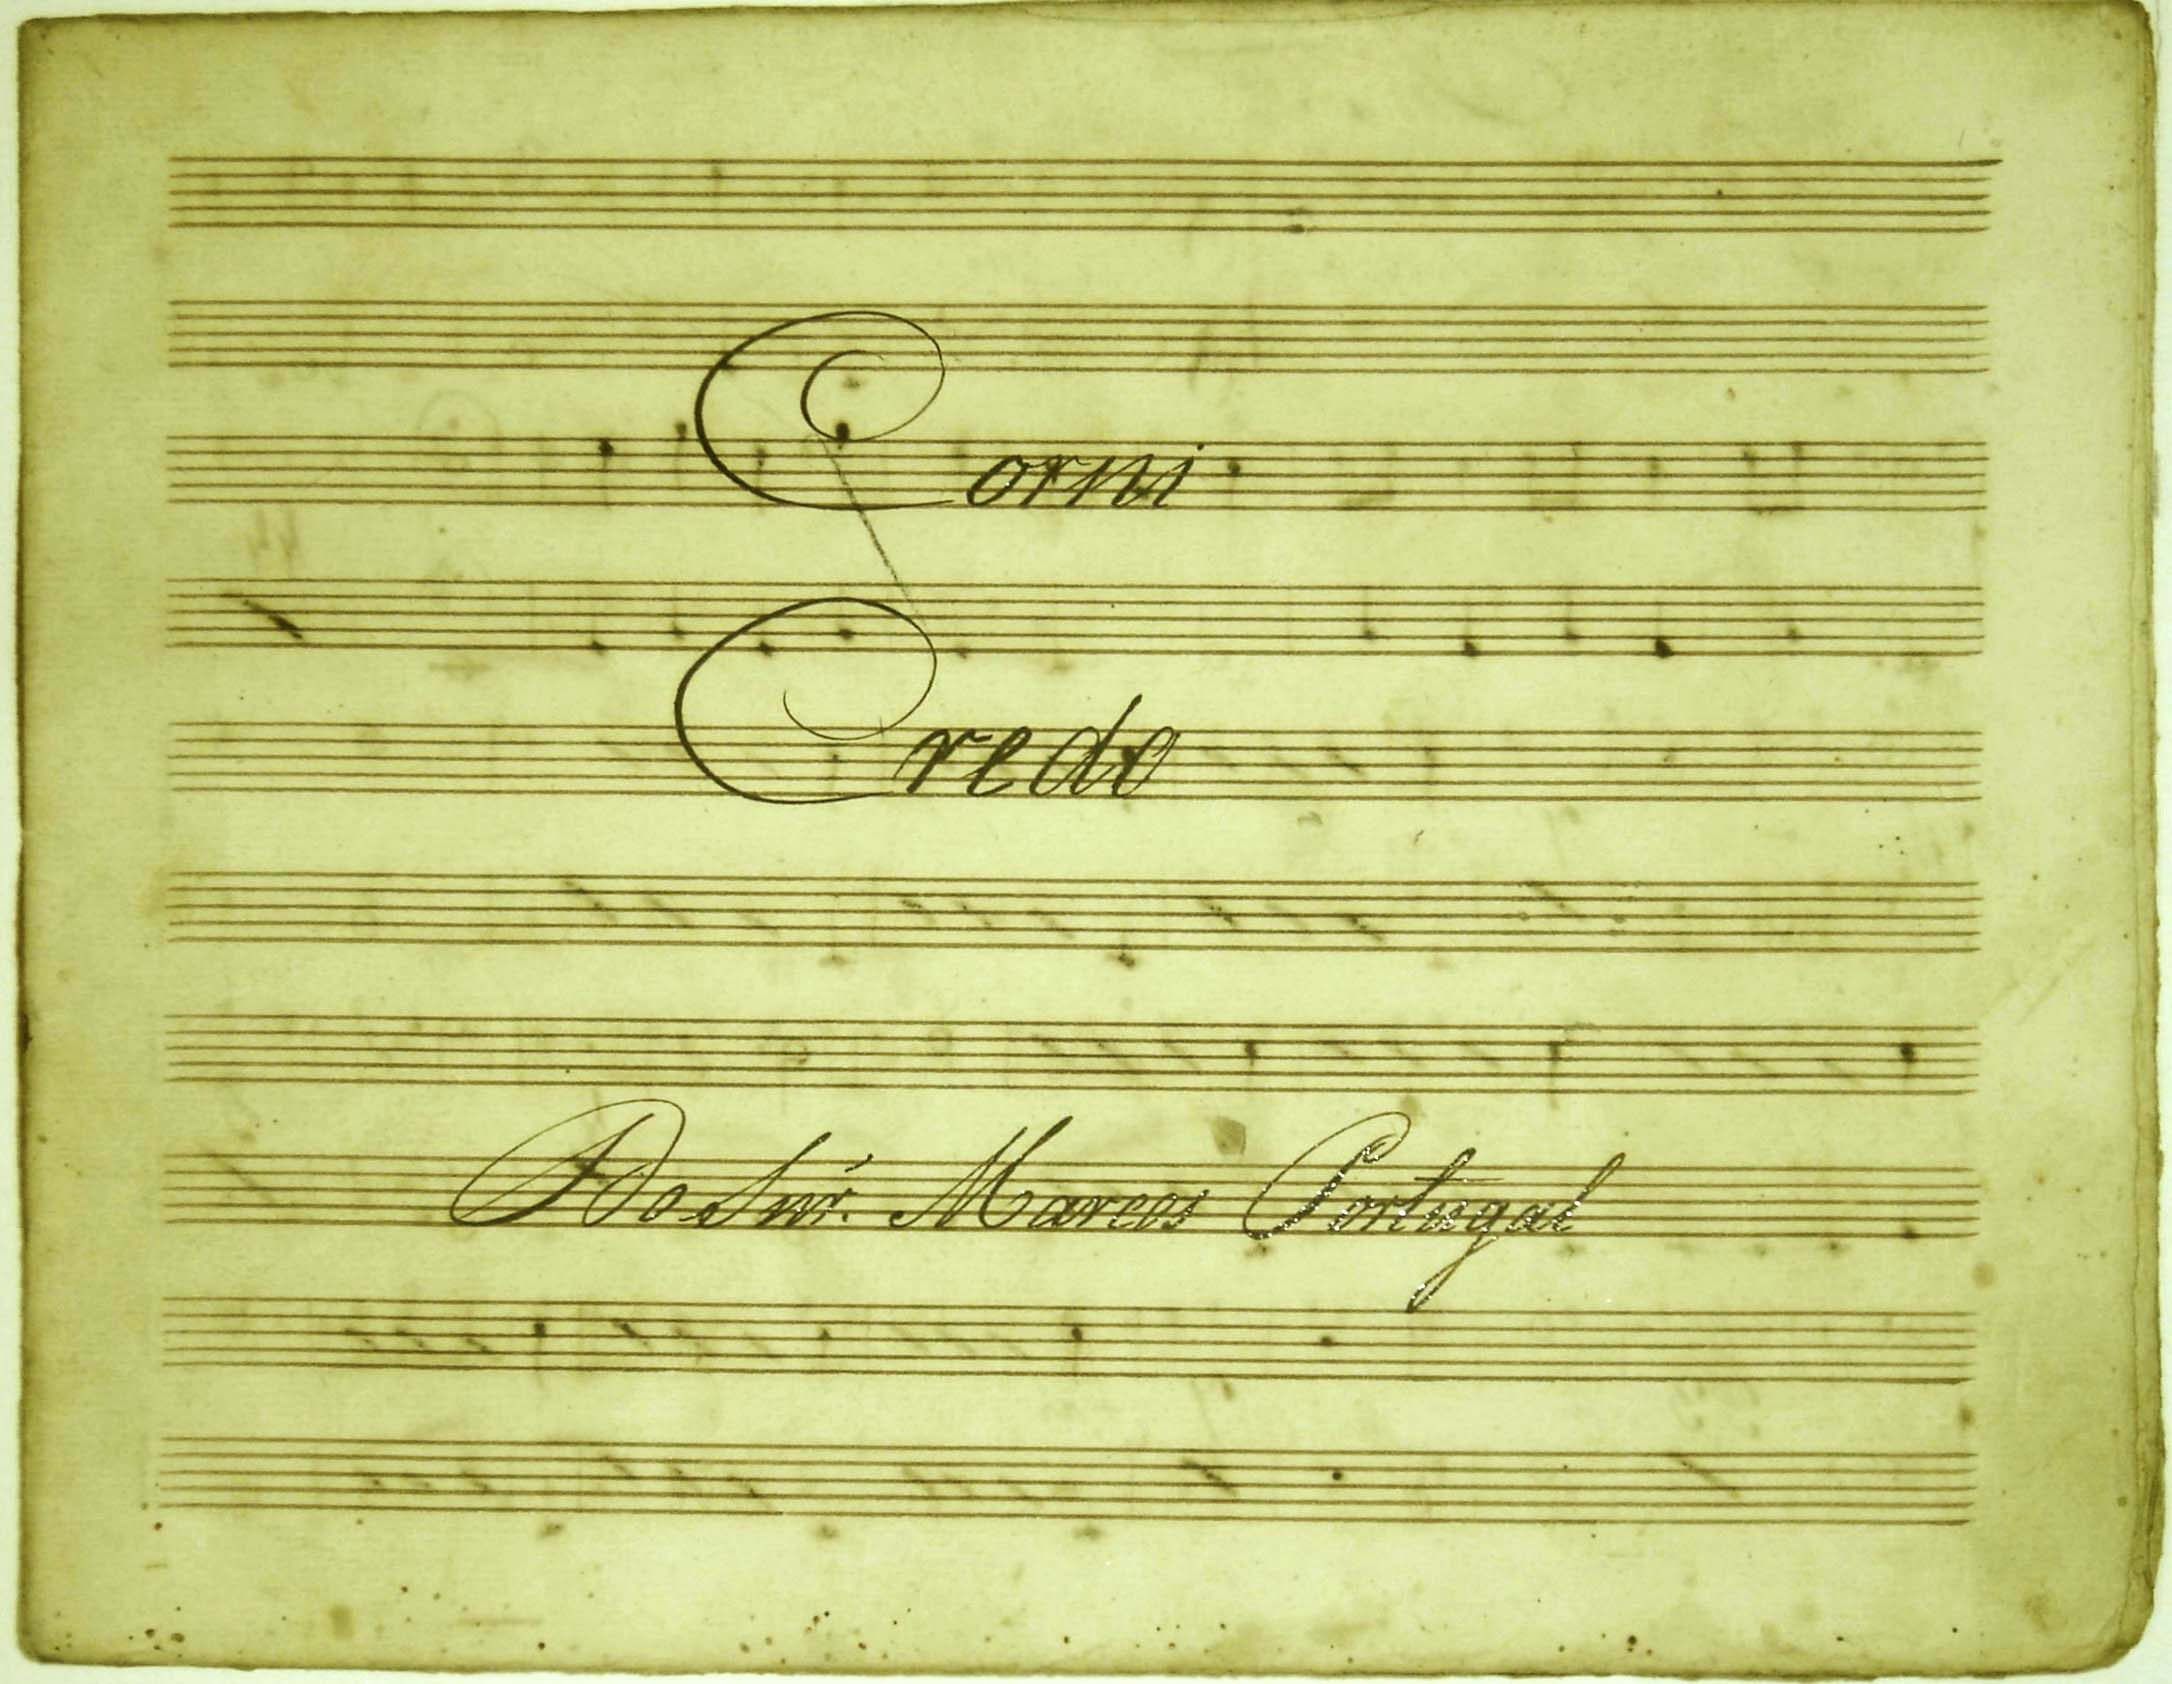 Corni
Credo
Do Snr. Marcos Portugal